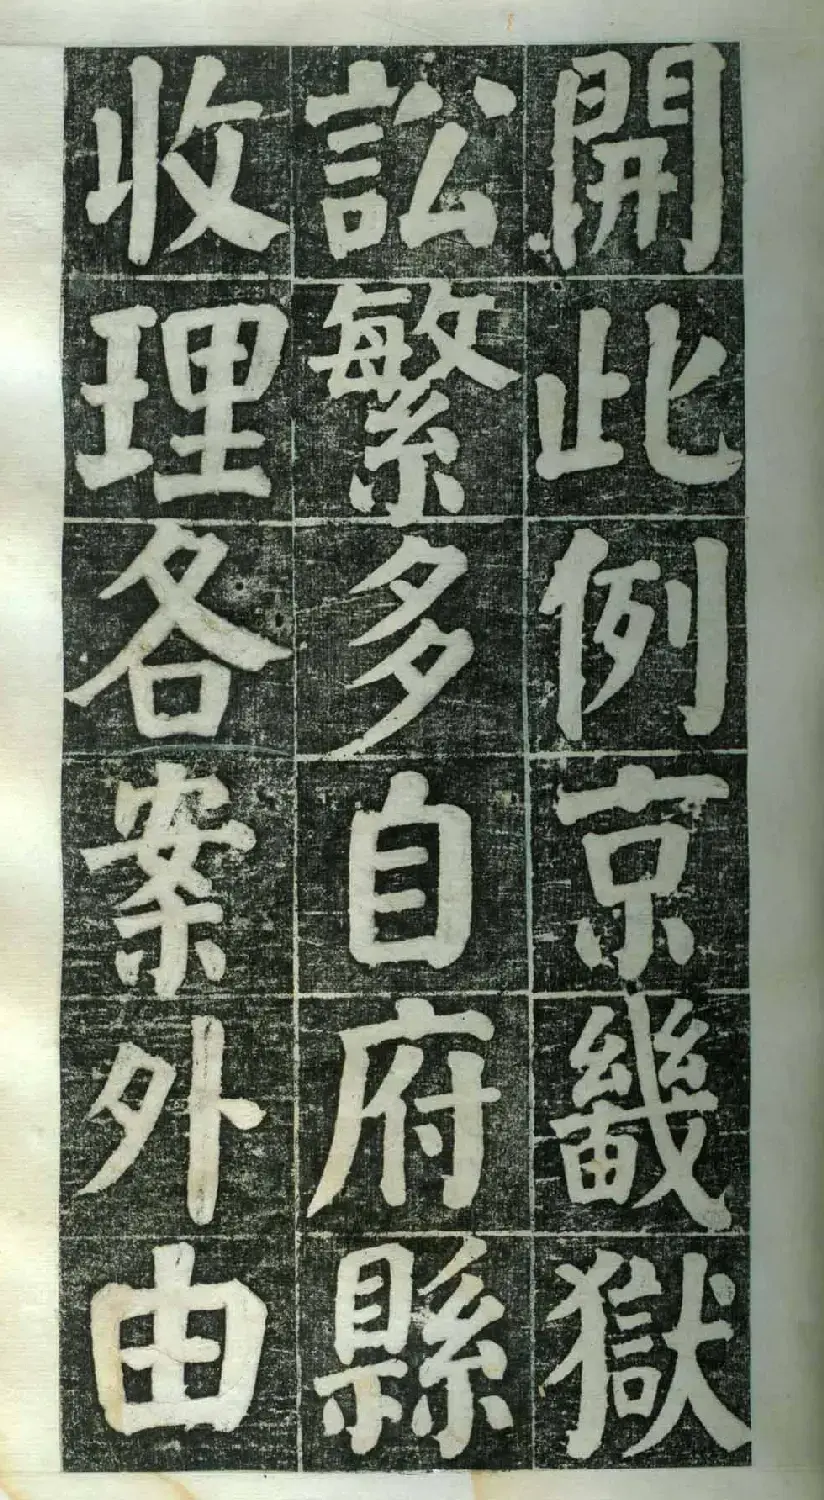 開此例京畿獄
訟繁多自府縣
收理各案外由